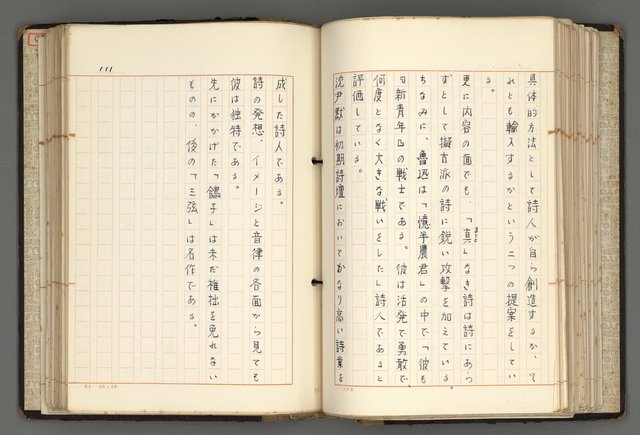 具体的方法として詩人が自ら創造するか、そ
れとも輸入するかという二つの提案をしてい
る。
更に内容の面でも、「真」なき詩は詩にあら
ずとして擬古派の詩に鋭い攻撃を加えている。
ちなみに、魯迅は「憶半農君」の中で「彼も
『新青年』の戦士である。彼は活発で勇敢で、
何度となく大きな戦いをした」詩人であると
評価している。
沈尹默は初期詩壇においてかなり高い詩業を
成した詩人である。
詩の発想、イメージと音律の各面から見ても
彼は独特である。
先にかかげた「鴿子」は未だ稚拙を免れない
ものの、後の「三弦」は名作である。
111